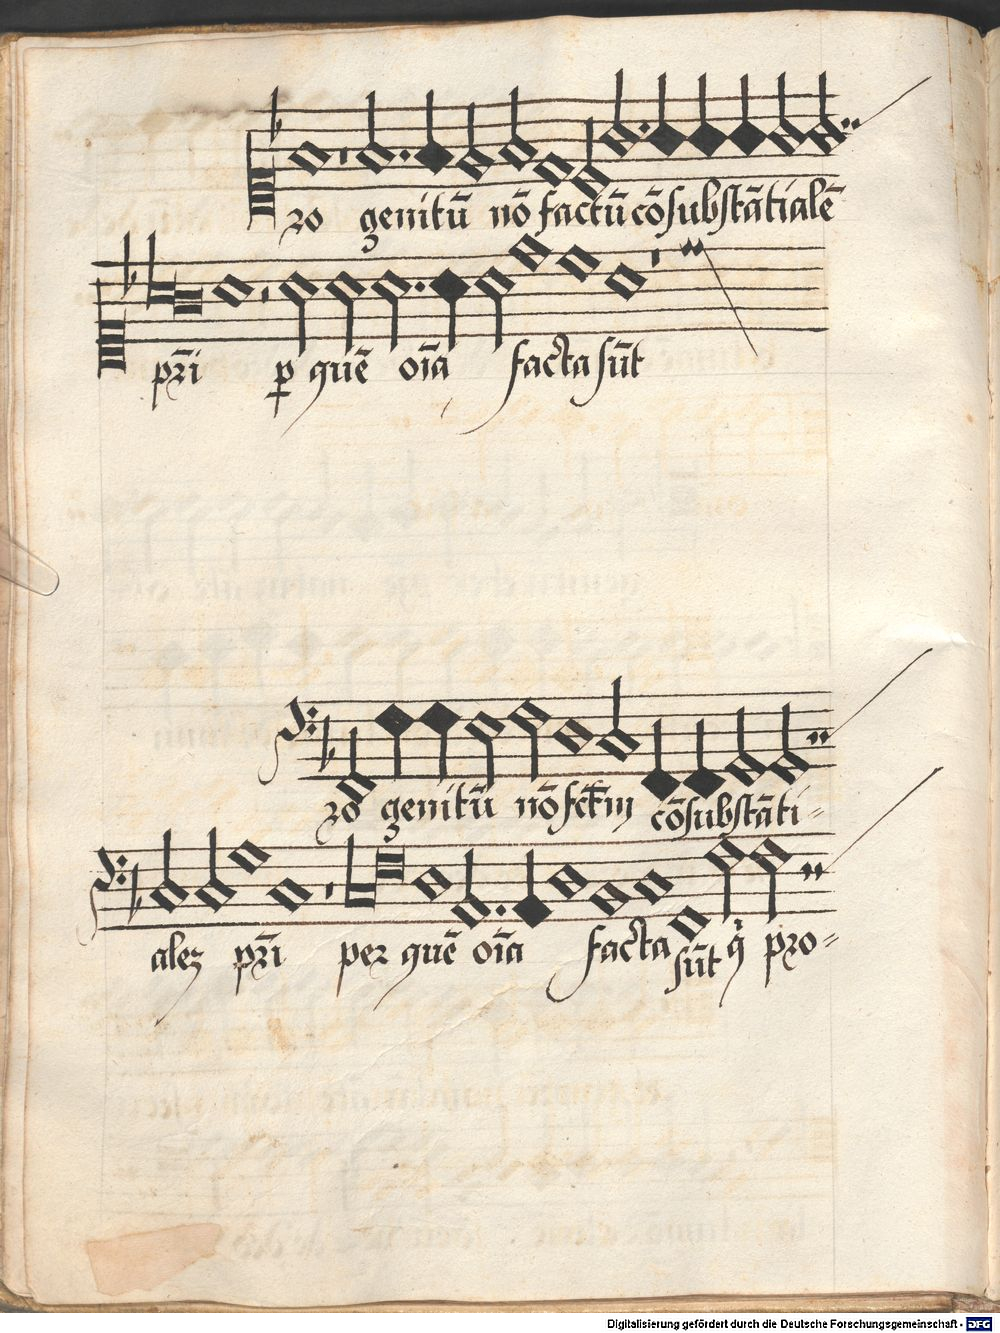 zo genitū nō factū cōsubstātialē
pr̄i ꝑ quē oīa facta sūt
zo genitū nō fct̄m cōsubstāti-
alez pr̄i per quē oīa facta sūt q̇ pro-
Digitalisierung gefördert durch die Deutsche Forschungsgemeinschaft - DFG